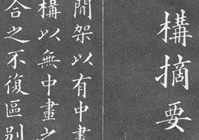 構摘要
間架以有中畫
構以無中畫之
合之不復區別